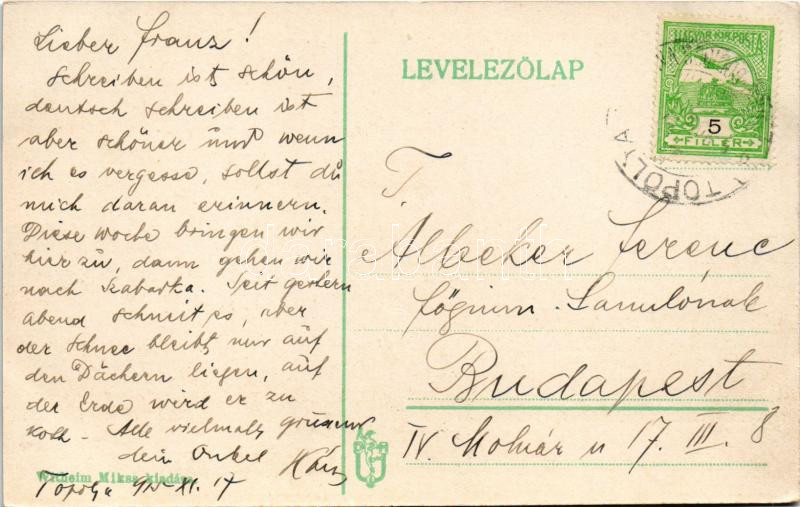 Lieber Franz!
Schreiben ist schön,
deutsch schreiben ist
aber schöner und wenn
ich es vergesse, sollst du
mich daran erinnern.
Diese woche bringen wir
hier zu, dann gehen wir
nach Szabatka. Seit gestern
abend schneit es, aber
der Schnee bleibt nur auf
den Dächern liegen, auf
der Erde wird er zu
koth. Alle vielmals grüssend
dein Onkel
Wilheim Miksa kiadása
Topolya 915 XI. 17
LEVELEZŐLAP
MAGYAR KIR. POSTA
5
FILLÉR
TOPOLYA
T.
Albeker Ferenc
főgimn. tanulónak
Budapest
IV. Molnár u 17. III. 8